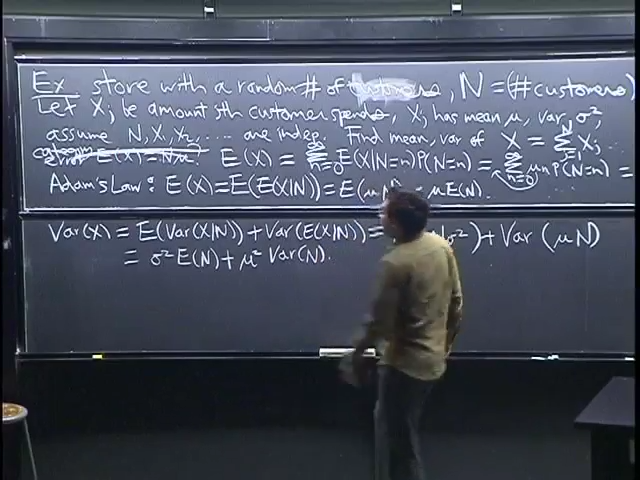 Ex store with a random # of customers, N = (# customers)
Let Xj be amount jth customer spends, Xj has mean μ, var. σ²,
assume N, X1, X2, ... are indep. Find mean, var of X = Σ_{j=1}^{N} Xj
E(X) = Nμ. E(X) = Σ_{n=0}^{∞} E(X|N=n) P(N=n) = Σ_{n=0}^{∞} μn P(N=n) =
Adam's Law: E(X) = E(E(X|N)) = E(μN) = μE(N).
Var(X) = E(Var(X|N)) + Var(E(X|N)) = σ²) + Var (μN)
= σ² E(N) + μ² Var(N).